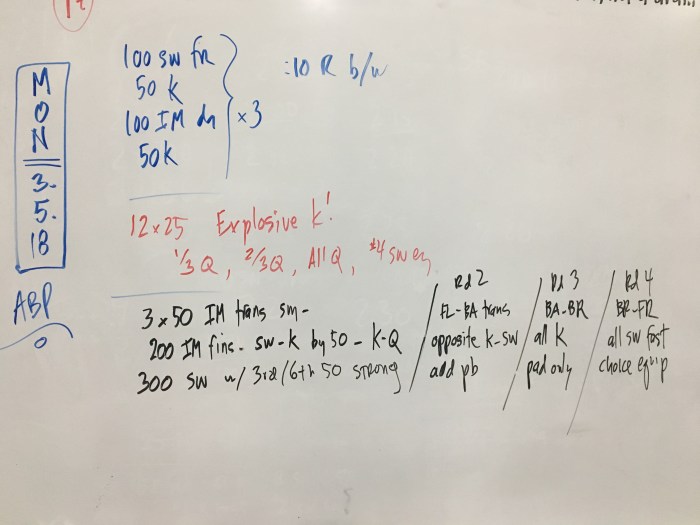 MON
3.
5.
18
ABP
100 sw fr
50 k
100 IM dr
50k
x3
:10 R b/w
12x25 Explosive k!
1/3 Q, 2/3 Q, All Q, #4 sw ez
3x50 IM trans sm-
200 IM fins- sw-k by 50 - k-Q
300 sw w/ 3rd/6th 50 STRONG
Rd 2
FL-BA trans
opposite k-sw
add pb
Rd 3
BA-BR
all k
pad only
Rd 4
BR-FR
all sw fast
choice equip